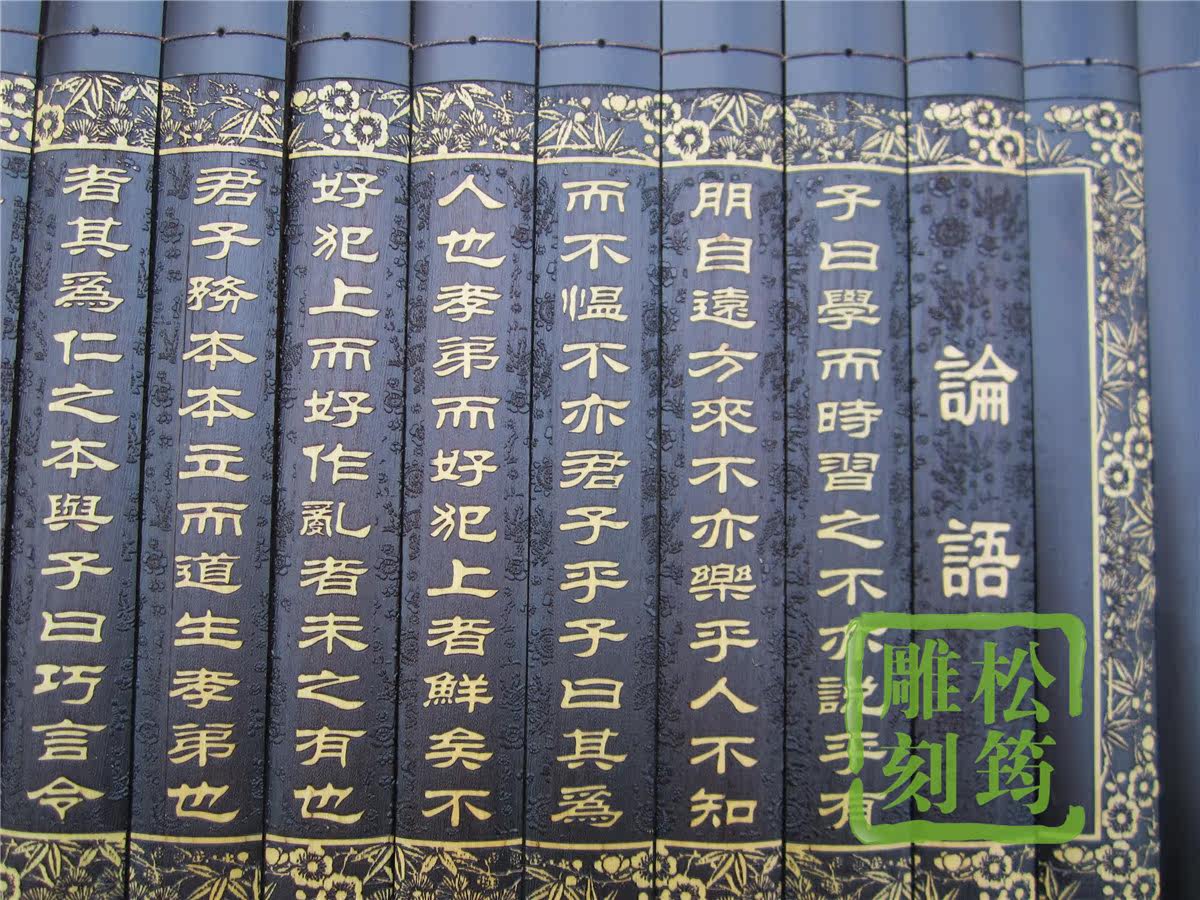 論語
子曰學而時習之不亦説乎有
朋自遠方來不亦樂乎人不知
而不愠不亦君子乎子曰其爲
人也孝弟而好犯上者鮮矣不
好犯上而好作亂者未之有也
君子務本本立而道生孝弟也
者其爲仁之本與子曰巧言令
松筠
雕刻